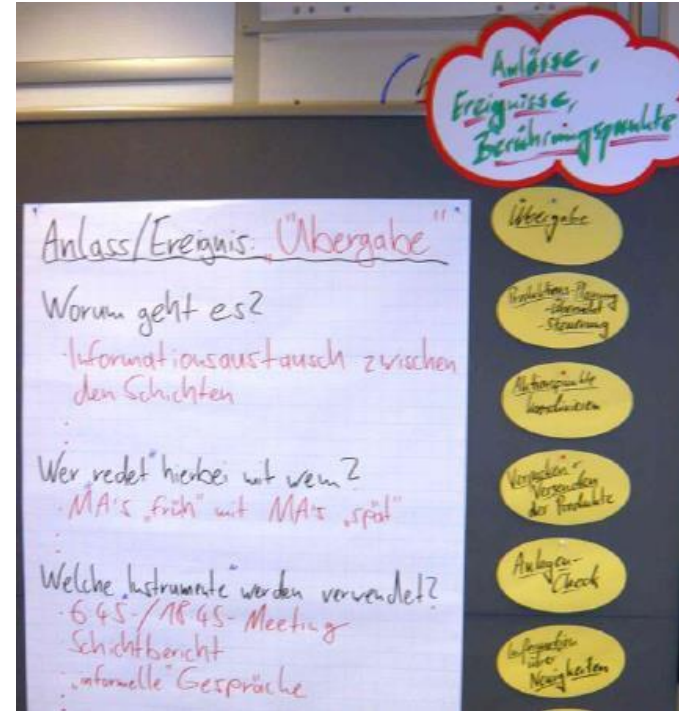 Anlässe,
Ereignisse,
Berührungspunkte
Anlass/Ereignis: „Übergabe"
Worum geht es?
· Informationsaustausch zwischen
den Schichten
:
Wer „redet" hierbei mit wem?
· MA's „früh" mit MA's „spät"
:
Welche „Instrumente" werden verwendet?
· 645-/1845-Meeting
· Schichtbericht
· „informelle" Gespräche
:
Übergabe
Produktions-Planung
-Übersicht
-Steuerung
Aktionspunkte
koordinieren
Verpacken +
Versenden
der Produkte
Anlagen-
Check
Information
über
Neuigkeiten